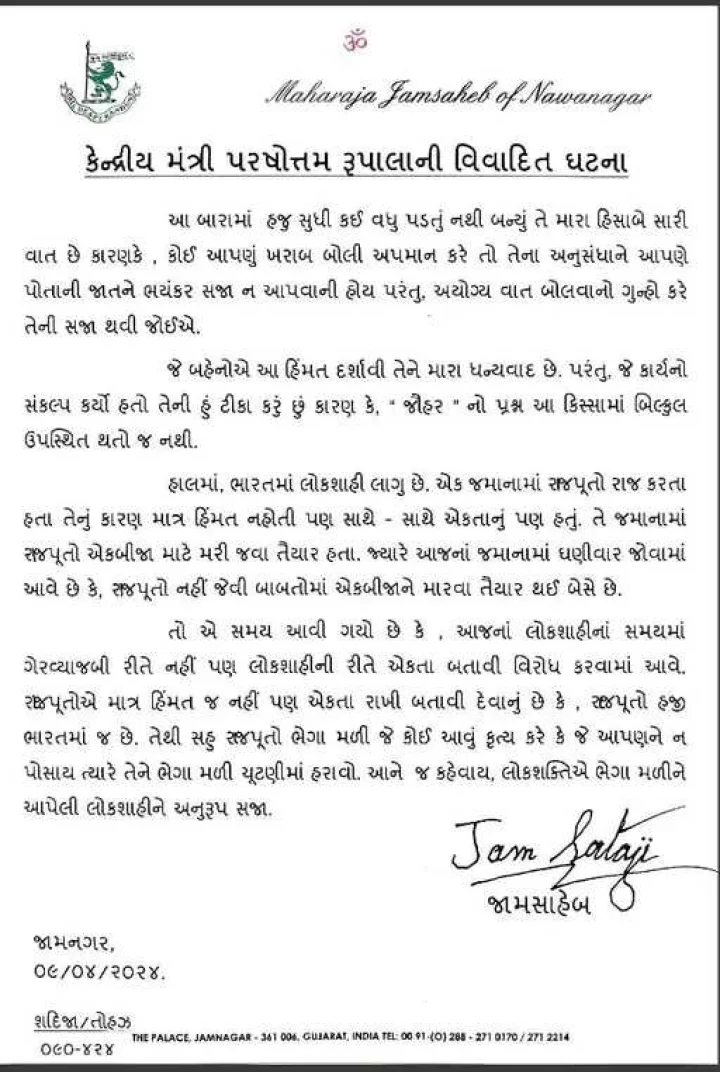 ૐ
Maharaja Jamsaheb of Nawanagar
કેન્દ્રીય મંત્રી પરષોત્તમ રૂપાલાની વિવાદિત ઘટના
આ બારામાં હજુ સુધી કઈ વધુ પડતું નથી બન્યું તે મારા હિસાબે સારી
વાત છે કારણકે , કોઈ આપણું ખરાબ બોલી અપમાન કરે તો તેના અનુસંધાને આપણે
પોતાની જાતને ભયંકર સજા ન આપવાની હોય પરંતુ, અયોગ્ય વાત બોલવાનો ગુન્હો કરે
તેની સજા થવી જોઈએ.
જે બહેનોએ આ હિંમત દર્શાવી તેને મારા ધન્યવાદ છે. પરંતુ, જે કાર્યનો
સંકલ્પ કર્યો હતો તેની હું ટીકા કરું છું કારણ કે, " જૌહર " નો પ્રશ્ન આ કિસ્સામાં બિલ્કુલ
ઉપસ્થિત થતો જ નથી.
હાલમાં, ભારતમાં લોકશાહી લાગુ છે. એક જમાનામાં રાજપૂતો રાજ કરતા
હતા તેનું કારણ માત્ર હિંમત નહોતી પણ સાથે - સાથે એકતાનું પણ હતું. તે જમાનામાં
રાજપૂતો એકબીજા માટે મરી જવા તૈયાર હતા. જ્યારે આજનાં જમાનામાં ઘણીવાર જોવામાં
આવે છે કે, રાજપૂતો નહીં જેવી બાબતોમાં એકબીજાને મારવા તૈયાર થઈ બેસે છે.
તો એ સમય આવી ગયો છે કે , આજનાં લોકશાહીનાં સમયમાં
ગેરવ્યાજબી રીતે નહીં પણ લોકશાહીની રીતે એકતા બતાવી વિરોધ કરવામાં આવે.
રાજપૂતોએ માત્ર હિંમત જ નહીં પણ એકતા રાખી બતાવી દેવાનું છે કે , રાજપૂતો હજી
ભારતમાં જ છે. તેથી સહુ રાજપૂતો ભેગા મળી જે કોઈ આવું કૃત્ય કરે કે જે આપણને ન
પોસાય ત્યારે તેને ભેગા મળી ચૂટણીમાં હરાવો. આને જ કહેવાય, લોકશક્તિએ ભેગા મળીને
આપેલી લોકશાહીને અનુરૂપ સજા.
Jam Sataji
જામસાહેબ
જામનગર,
૦૯/૦૪/૨૦૨૪.
શદિજા/તોહઝ
૦૯૦-૪૨૪
THE PALACE, JAMNAGAR - 361 006. GUJARAT, INDIA TEL: 00 91-(O) 288 - 271 0170 / 271 2214